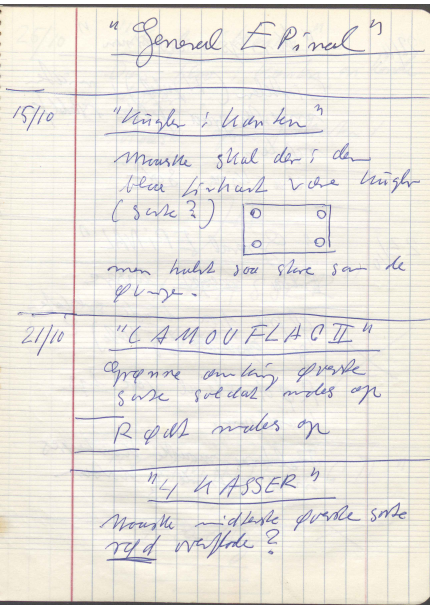 "General EPinal"
15/10
"Kugler i Kanten"
Måske skal der i den
blå linkant være kugler
(sorte?)
men helst så store som de
øvrige.
21/10
"CAMOUFLAGE II"
Grønne omkring øverste
sorte soldat males op
Rødt males op
"4 KASSER"
Måske midterste øverste sorte
rød overflade?